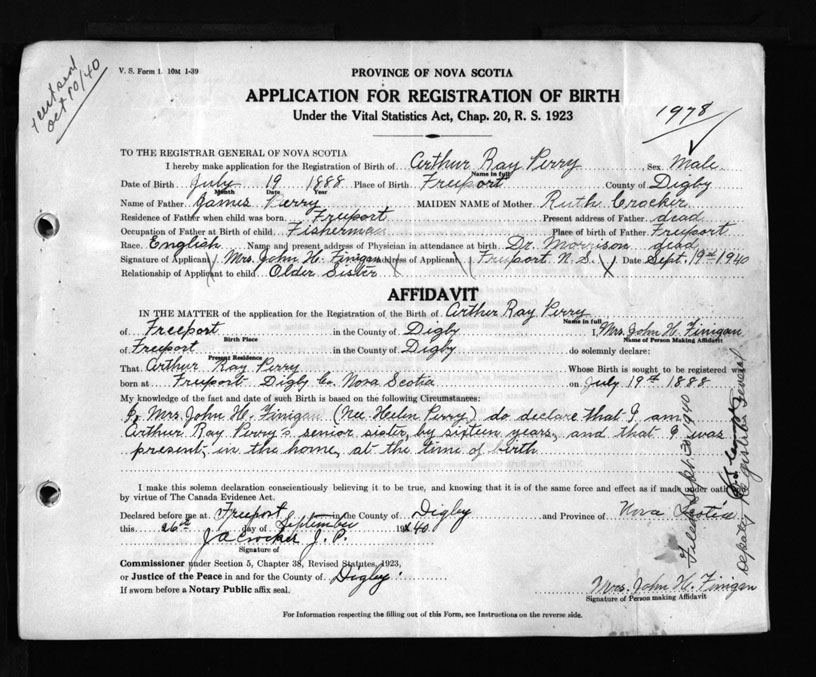 1 cert sent
Oct 10/40
V. S. Form 1. 10M 1-39
PROVINCE OF NOVA SCOTIA
APPLICATION FOR REGISTRATION OF BIRTH
Under the Vital Statistics Act, Chap. 20, R. S. 1923
1978
TO THE REGISTRAR GENERAL OF NOVA SCOTIA
I hereby make application for the Registration of Birth of Arthur Ray Perry Sex Male
Name in full
Date of Birth July 19 1888 Place of Birth Freeport County of Digby
Month Date Year
Name of Father James Perry MAIDEN NAME of Mother Ruth Crocker
Residence of Father when child was born Freeport Present address of Father dead
Occupation of Father at Birth of child Fisherman Place of birth of Father Freeport
Race English Name and present address of Physician in attendance at birth Dr. Morrison dead
Signature of Applicant Mrs. John H. Finigan Address of Applicant Freeport N.S. Date Sept. 19th 1940
Relationship of Applicant to child Older Sister
AFFIDAVIT
IN THE MATTER of the application for the Registration of the Birth of Arthur Ray Perry
Name in full
of Freeport in the County of Digby I, Mrs. John H. Finigan
Birth Place Name of Person Making Affidavit
of Freeport in the County of Digby do solemnly declare:
Present Residence
That Arthur Ray Perry Whose Birth is sought to be registered was
born at Freeport Digby Co. Nova Scotia on July 19th 1888
My knowledge of the fact and date of such Birth is based on the following Circumstances:
I, Mrs. John H. Finigan (Nee Helen Perry) do declare that I am
Arthur Ray Perry's senior sister, by sixteen years, and that I was
present, in the home, at the time of birth
I make this solemn declaration conscientiously believing it to be true, and knowing that it is of the same force and effect as if made under oath
by virtue of The Canada Evidence Act.
Declared before me at Freeport in the County of Digby and Province of Nova Scotia
this 26th day of September 1940
J A Crocker J. P.
Signature of
Commissioner under Section 5, Chapter 38, Revised Statutes, 1923,
or Justice of the Peace in and for the County of Digby.
If sworn before a Notary Public affix seal.
Mrs. John H. Finigan
Signature of Person making Affidavit
For Information respecting the filling out of this Form, see Instructions on the reverse side.
Filed Sept. 30 1940
Deputy Registrar General